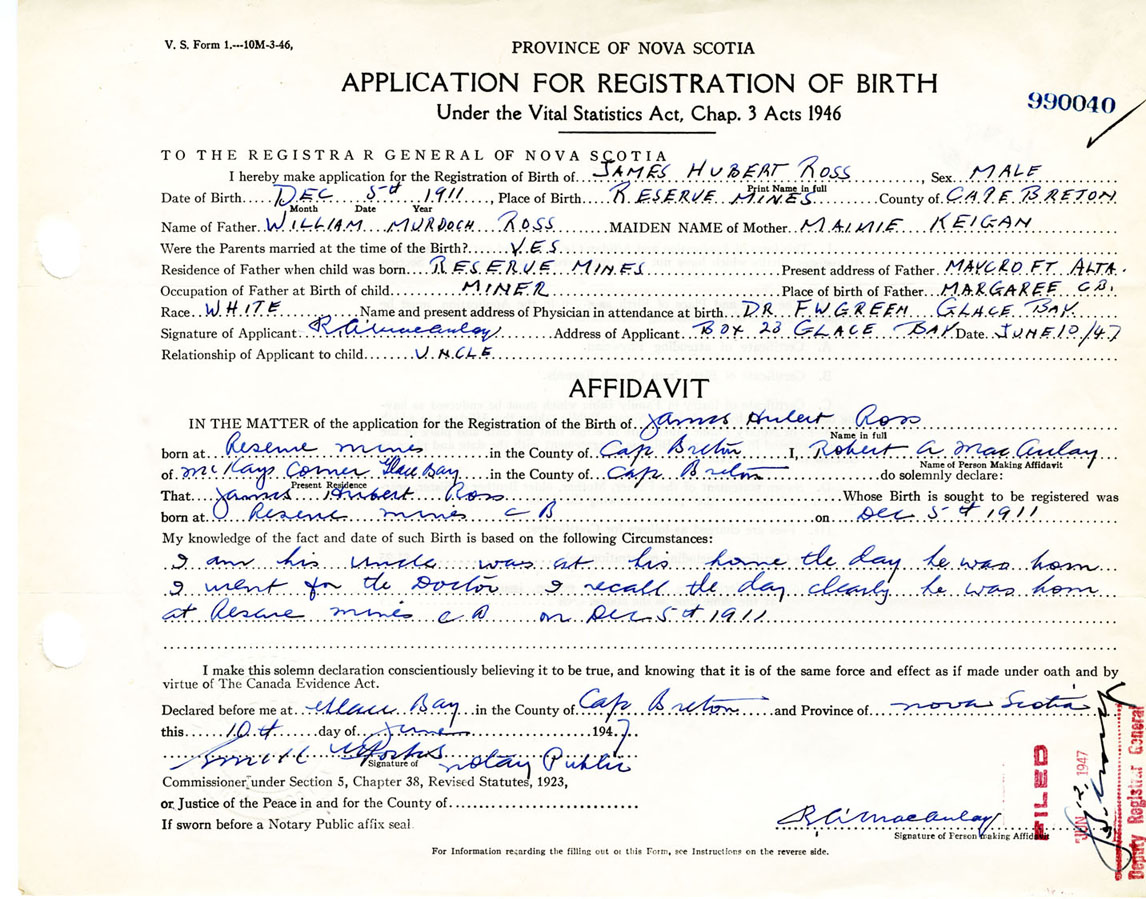 V. S. Form 1.---10M-3-46,
PROVINCE OF NOVA SCOTIA
APPLICATION FOR REGISTRATION OF BIRTH
990040
Under the Vital Statistics Act, Chap. 3 Acts 1946
TO THE REGISTRAR GENERAL OF NOVA SCOTIA
I hereby make application for the Registration of Birth of JAMES HUBERT ROSS, Sex MALE
Print Name in full
Date of Birth DEC 5th 1911, Place of Birth RESERVE MINES County of CAPE BRETON
Month Date Year
Name of Father WILLIAM MURDOCH ROSS MAIDEN NAME of Mother MAIMIE KEIGAN
Were the Parents married at the time of the Birth? YES
Residence of Father when child was born RESERVE MINES Present address of Father MAYCROFT ALTA.
Occupation of Father at Birth of child MINER Place of birth of Father MARGAREE C.B.
Race WHITE Name and present address of Physician in attendance at birth DR F.W.GREEN GLACE BAY
Signature of Applicant R. A. MacAulay Address of Applicant BOX 28 GLACE BAY Date JUNE 10/47
Relationship of Applicant to child UNCLE
AFFIDAVIT
IN THE MATTER of the application for the Registration of the Birth of James Hubert Ross
Name in full
born at Reserve mines in the County of Cape Breton I, Robert A. MacAulay
Name of Person Making Affidavit
of McKays Corner Glace Bay in the County of Cape Breton do solemnly declare:
Present Residence
That James Hubert Ross Whose Birth is sought to be registered was
born at Reserve mines C B on Dec 5th 1911
My knowledge of the fact and date of such Birth is based on the following Circumstances:
I am his Uncle was at his home the day he was born
I went for the Doctor I recall the day clearly he was born
at Reserve mines C.B on Dec 5th 1911
I make this solemn declaration conscientiously believing it to be true, and knowing that it is of the same force and effect as if made under oath and by
virtue of The Canada Evidence Act.
Declared before me at Glace Bay in the County of Cape Breton and Province of Nova Scotia
this 10th day of June 1947.
Signature of Notary Public
Commissioner under Section 5, Chapter 38, Revised Statutes, 1923,
or Justice of the Peace in and for the County of
If sworn before a Notary Public affix seal
R. A. MacAulay
Signature of Person making Affidavit
For Information regarding the filling out of this Form, see Instructions on the reverse side.
FILED
JUN 1947
Deputy Registrar General